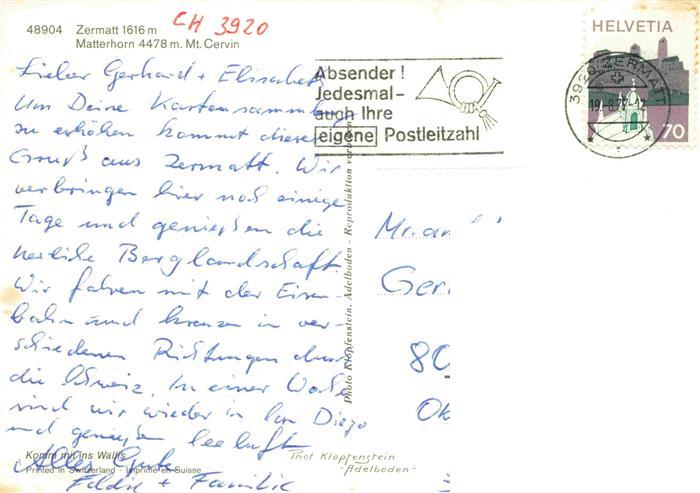 CH 3920
48904 Zermatt 1616 m
Matterhorn 4478 m. Mt. Cervin
HELVETIA
70
3920 ZERMATT
19.-8.77-17
Absender !
Jedesmal-
auch Ihre
eigene Postleitzahl
Lieber Gerhard + Elisabeth
Um Deine Kartensamml
zu erhöhen kommt dieser
Gruß aus Zermatt. Wir
verbringen hier noch einige
Tage und genießen die
herrliche Berglandschaft.
Wir fahren mit der Eisen-
bahn und kreuz in ver-
schiedenen Richtungen durch
die Schweiz. In einer Woche
sind wir wieder in San Diego
und genießen Seeluft
Alles Gute
+ Familie
Mr. an
Ger
80
Ok
Photo Klopfenstein, Adelboden - Reproduktion verboten
Komm mit ins Wallis
Printed in Switzerland - Imprimé en Suisse
Phot. Klopfenstein
-Adelboden-